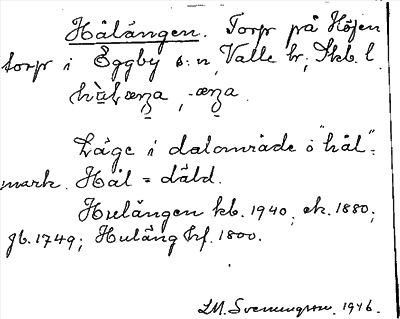 Hålängen. Torp på Höjen
torp i Eggby s:n, Valle hr, Skb. l.
Läge i dalområde o "hål"-
mark. Hål = däld.
Hulängen kb. 1940, ek. 1880;
gb. 1749; Huläng hf. 1800.
LM. Svenungsson. 1946.